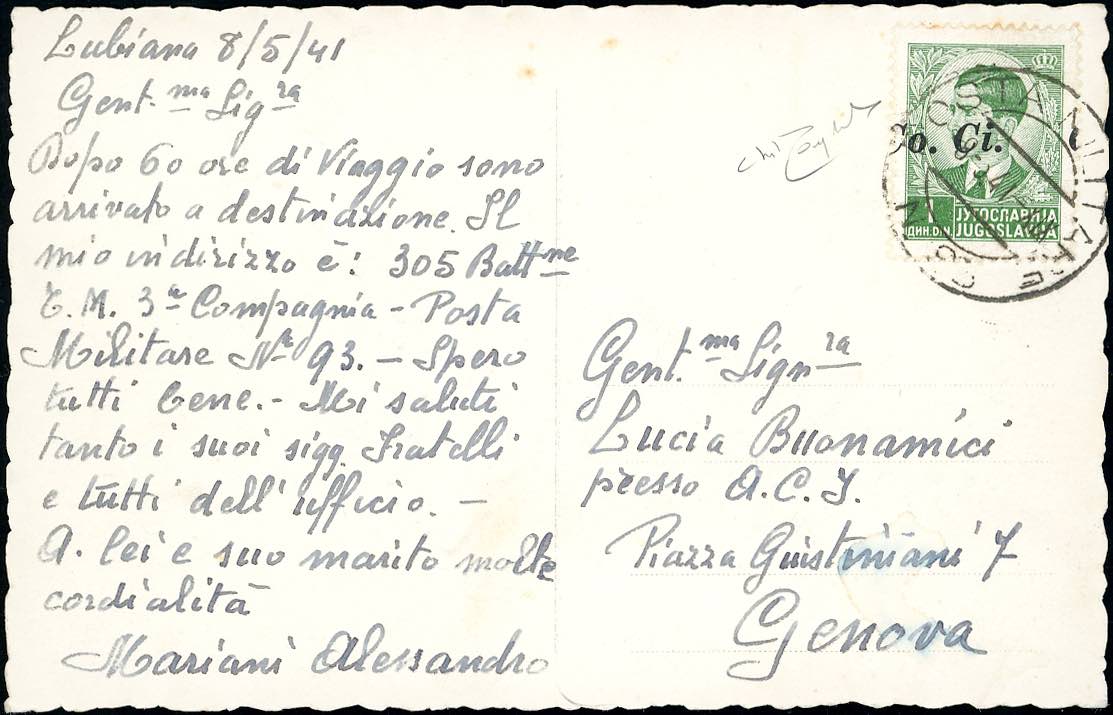 Lubiana 8/5/41
Gent.ma Sigra
Dopo 60 ore di Viaggio sono
arrivato a destinazione. Il
mio indirizzo è: 305 Battne
T.M. 3a Compagnia - Posta
Militare No 93. - Spero
tutti bene. - Mi saluti
tanto i suoi sigg. Fratelli
e tutti dell'ufficio. -
A lei e suo marito molte
cordialità
Mariani Alessandro
Co. Ci.
1
ЈУГОСЛАВИЈА
ДИН. DIN JUGOSLAVIJA
POSTA MILITARE
Gent.ma Signra
Lucia Buonamici
presso A.C.I.
Piazza Guistiniani 7
Genova